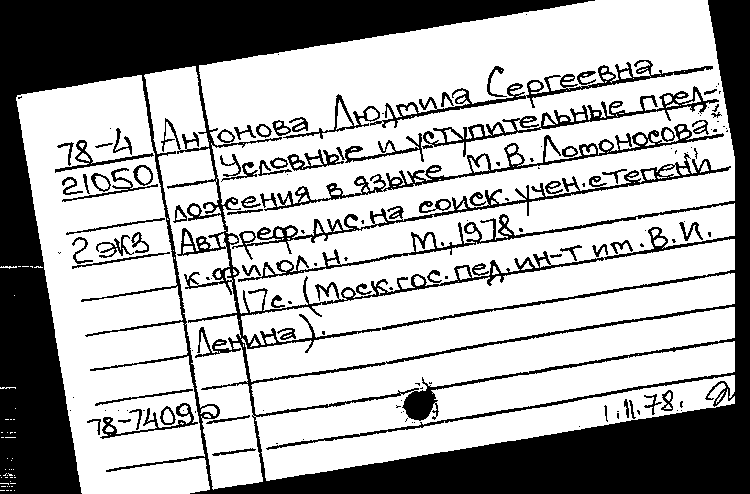 78-4 Антонова, Людмила Сергеевна.
21050 Условные и уступительные пред-
ложения в языке М.В. Ломоносова.
2 экз Автореф. дис. на соиск. учен. степени
к. филол. н. М., 1978.
17с. (Моск. гос. пед. ин-т им. В.И.
Ленина).
78-74092
1.11.78.